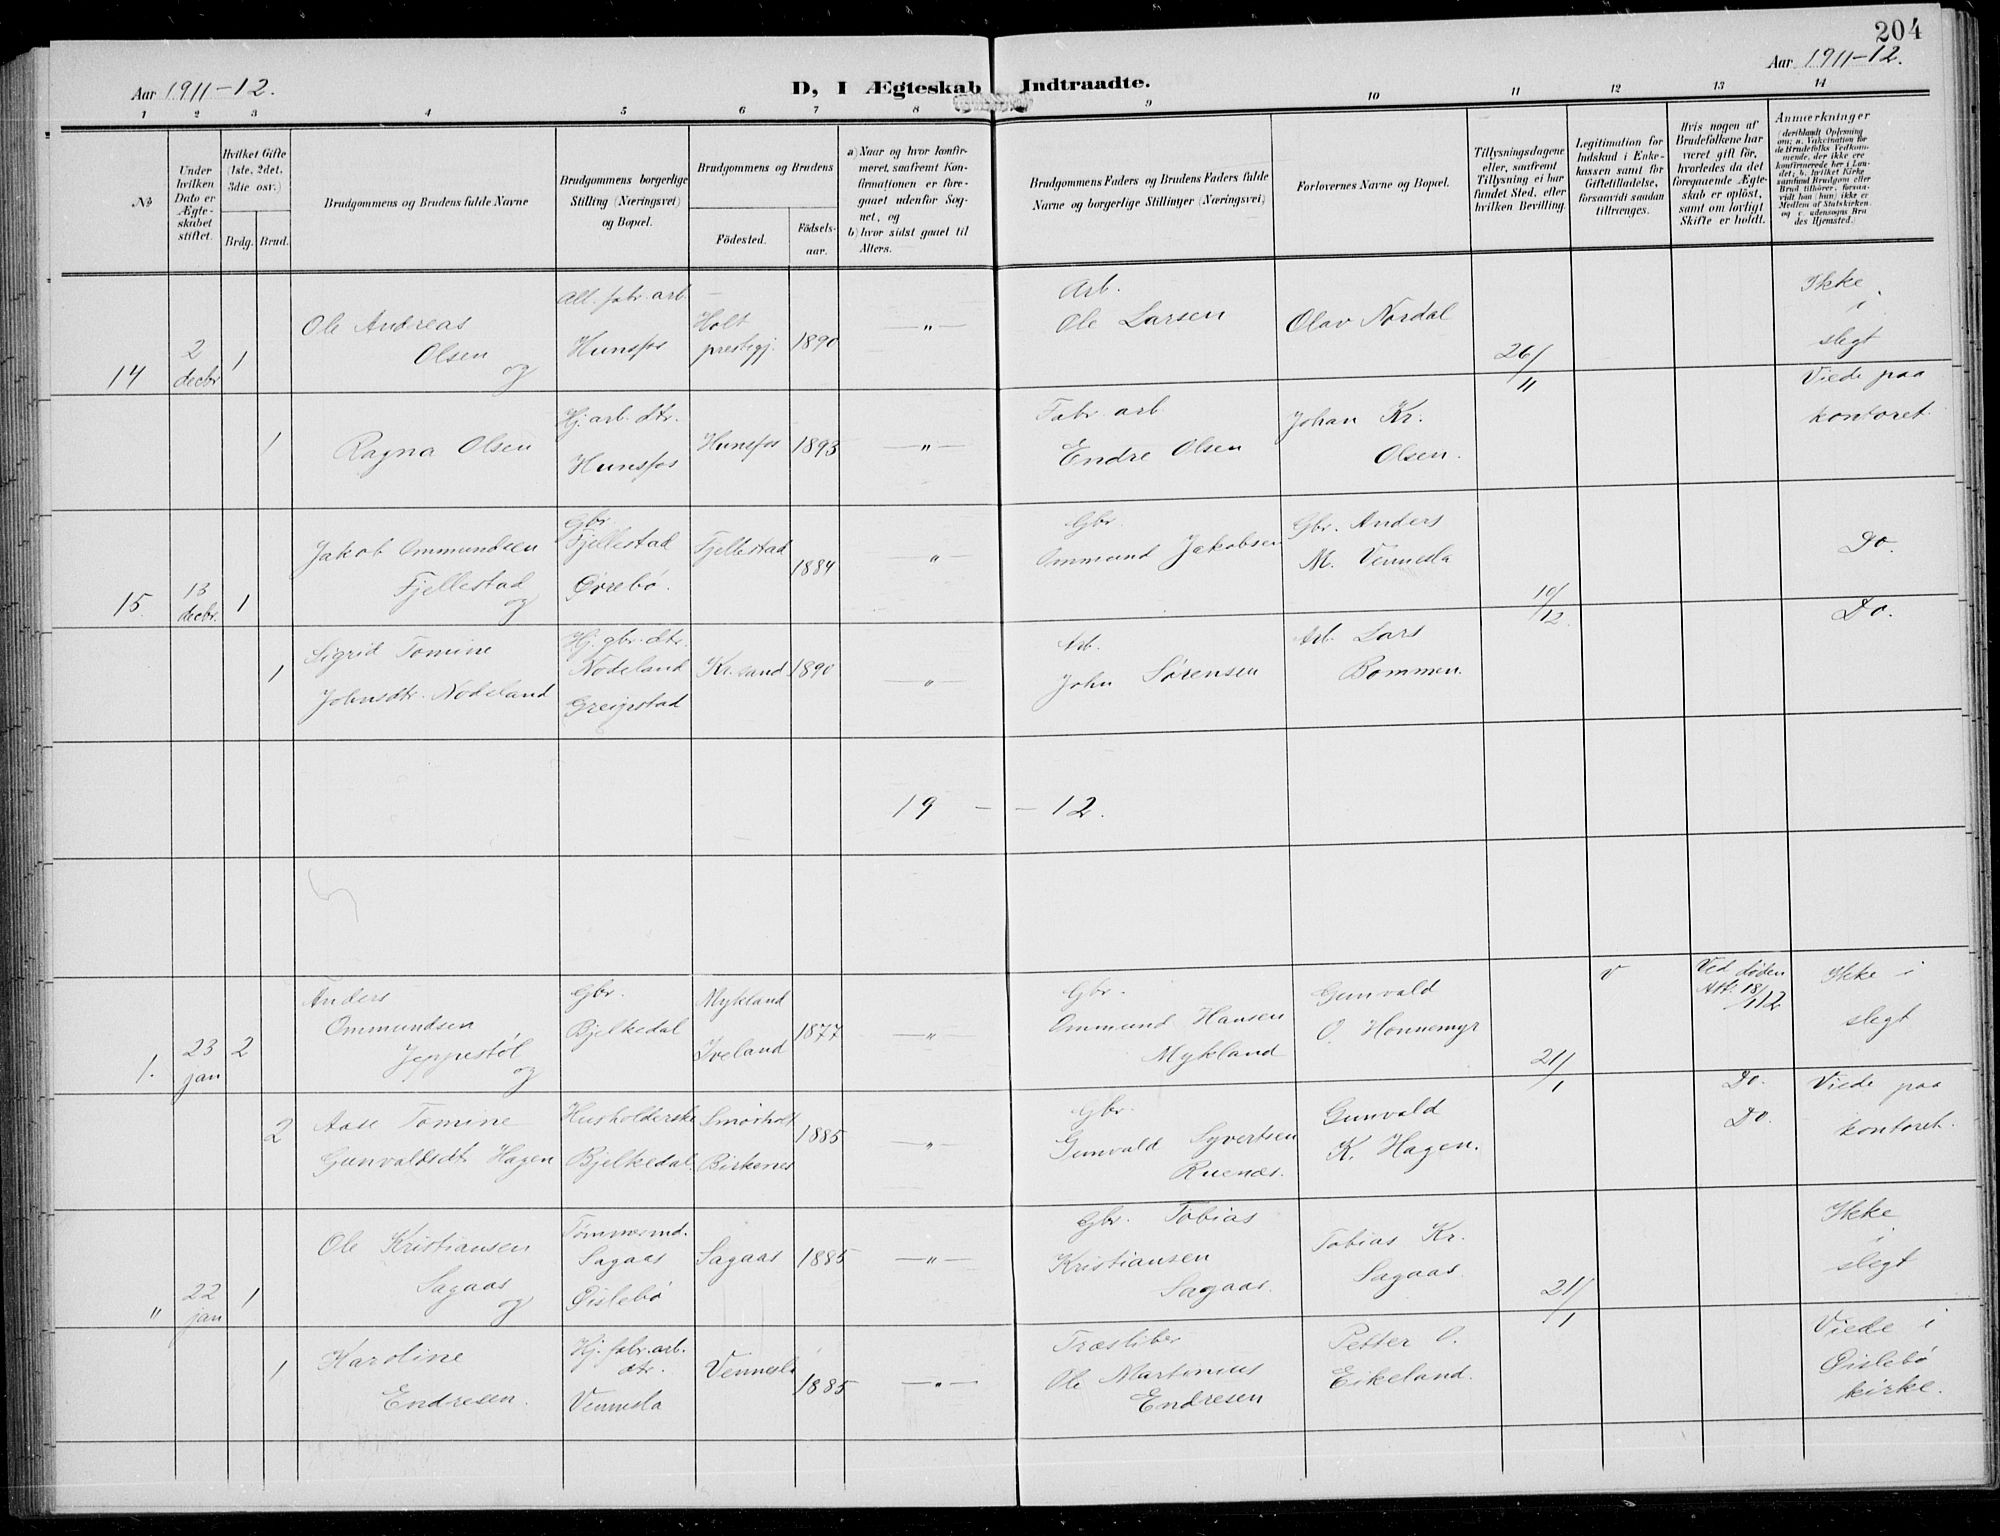 204
Aar 1911-12.
D, I Ægteskab Indtraadte.
Aar 1911-12.
1 2 3 4 5 6 7 8 9 10 11 12 13 14
No
Under hvilken Dato er Ægteskabet stiftet.
Hvilket Gifte (1ste, 2det, 3die osv.)
Brdg. Brud.
Brudgommens og Brudens fulde Navne
Brudgommens borgerlige Stilling (Næringsvei) og Bopæl.
Brudgommens og Brudens
Födested.
Födselsaar.
a) Naar og hvor konfirmeret, saafremt Konfirmationen er foregaaet udenfor Sognet, og
b) hvor sidst gaaet til Alters.
Brudgommens Faders og Brudens Faders fulde Navne og borgerlige Stillinger (Næringsvei)
Forlovernes Navne og Bopæl.
Tillysningsdagene eller, saafremt Tillysning ei har fundet Sted, efter hvilken Bevilling.
Legitimation for Indskud i Enkekassen samt for Giftetilladelse, forsaavidt saadan tiltrænges.
Hvis nogen af Brudefolkene har været gift för, hvorledes da det foregaaende Ægteskab er oplöst, samt om lovligt Skifte er holdt.
Anmærkninger
(deriblandt Oplysning om: a. Vakcination for de Brudefolks Vedkommende, der ikke ere konfirmerede her i Landet; b. hvilket Kirkesamfund Brudgom eller Brud tilhører, forsaavidt han (hun) ikke er Medlem af Statskirken; og c. udensogns Brudes Hjemsted.
14
2 decbr
1
Ole Andreas
Olsen
og
All. fabr. arb.
Hunsfos
Holt
prestegj.
1890
— " —
Arb.
Ole Larsen
Olav Nordal
26/11
Ikke
i
slegt
1
Ragna Olsen
Hj. arb. dtr.
Hunsfos
Hunsfos
1893
— " —
Fabr. arb.
Endre Olsen
Johan Kr.
Olsen.
Viede paa
kontoret.
15.
13 decbr.
1
Jakob Ommundsen
Fjellestad
og
Gbr
Fjellestad
Øvrebø.
Fjellestad
1884
" —
Gbr.
Ommund Jakobsen
Gbr. Anders
M. Vennesla
10/12
Do.
1
Sigrid Tomine
Johnsdtr. Nodeland
Hj. gbr. dtr.
Nodeland
Greipstad
Kr.sand
1890
— " —
Arb.
John Sørensen
Arb. Lars
Bommen.
Do.
19 — — 12.
1.
23 jan
2
Anders
Ommundsen
Jeppestøl
og
Gbr.
Bjelkedal
Mykland
Iveland
1877
— " —
Gbr.
Ommund Hansen
Mykland
Gunvald
O. Honnemyr
21/1
v
Ved døden
Att. 18/1 12
Ikke i
slegt
2
Aase Tomine
Gunvaldsdt Hagen
Husholderske
Bjelkedal
Smørholt
Birkenes
1885
— " —
Gbr.
Gunvald Syvertsen
Ruenæs.
Gunvald
K. Hagen.
Do.
Do.
Viede paa
kontoret.
"
22 jan
1
Ole Kristiansen
Sagaas
og
Tømmermd.
Sagaas
Øislebø
Sagaas
1885
— " —
Gbr. Tobias
Kristiansen
Sagaas.
Tobias Kr.
Sagaas.
21/1
Ikke
i
slegt
1
Karoline
Endresen.
Hj. fabr. arb.
dtr.
Vennesla
Vennesla
1885
— " —
Træsliber
Ole Martinius
Endresen
Petter O.
Eikeland.
Viede i
Øislebø
kirke.